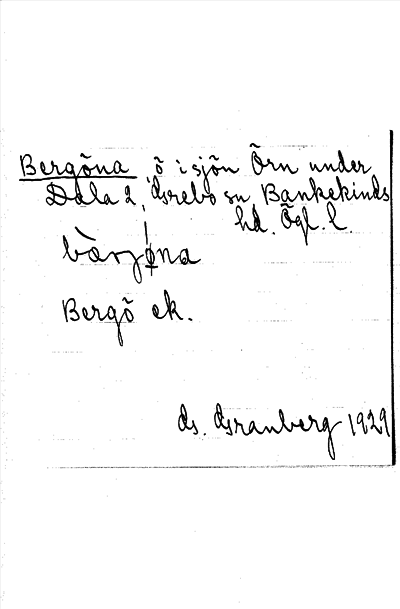 Bergöna, ö i sjön Örn under
Dala 2, Grebo sn, Bankekinds
hd. Ögl. l.
Bergö ek.
G. Granberg 1929